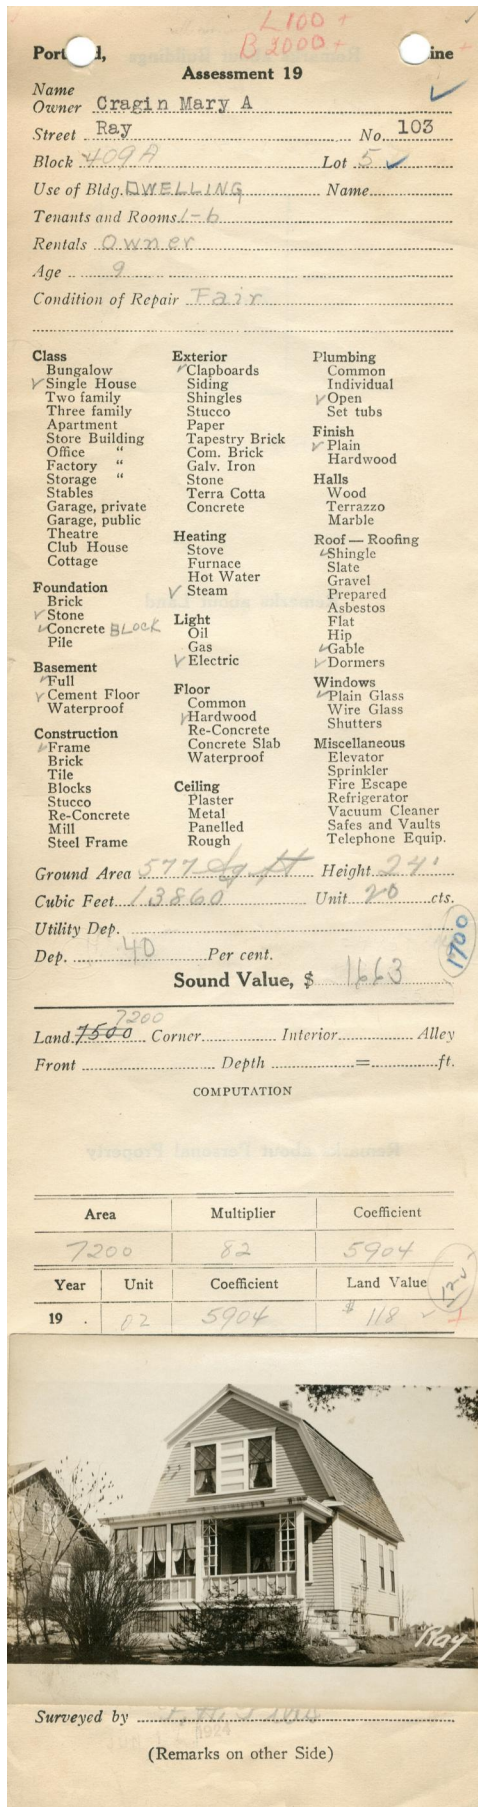 L 100 +
B 2000 +
Port d, ine
Assessment 19
Name
Owner Cragin Mary A
Street Ray No. 103
Block 409A Lot 5
Use of Bldg. DWELLING Name
Tenants and Rooms 1-6
Rentals Owner
Age 9
Condition of Repair Fair
Class
Bungalow
✓ Single House
Two family
Three family
Apartment
Store Building
Office "
Factory "
Storage "
Stables
Garage, private
Garage, public
Theatre
Club House
Cottage
Foundation
Brick
✓ Stone
✓ Concrete BLOCK
Pile
Basement
✓ Full
✓ Cement Floor
Waterproof
Construction
✓ Frame
Brick
Tile
Blocks
Stucco
Re-Concrete
Mill
Steel Frame
Exterior
✓ Clapboards
Siding
Shingles
Stucco
Paper
Tapestry Brick
Com. Brick
Galv. Iron
Stone
Terra Cotta
Concrete
Heating
Stove
Furnace
Hot Water
✓ Steam
Light
Oil
Gas
✓ Electric
Floor
Common
✓ Hardwood
Re-Concrete
Concrete Slab
Waterproof
Ceiling
Plaster
Metal
Panelled
Rough
Plumbing
Common
Individual
✓ Open
Set tubs
Finish
✓ Plain
Hardwood
Halls
Wood
Terrazzo
Marble
Roof — Roofing
✓ Shingle
Slate
Gravel
Prepared
Asbestos
Flat
Hip
✓ Gable
✓ Dormers
Windows
✓ Plain Glass
Wire Glass
Shutters
Miscellaneous
Elevator
Sprinkler
Fire Escape
Refrigerator
Vacuum Cleaner
Safes and Vaults
Telephone Equip.
Ground Area 577 sq ft Height 24'
Cubic Feet 13860 Unit 20 cts.
Utility Dep.
Dep. 40 Per cent.
1700
Sound Value, $ 1663
7200
Land 7500 Corner Interior Alley
Front Depth = ft.
COMPUTATION
Area Multiplier Coefficient
7200 82 5904
Year Unit Coefficient Land Value
19 . 02 5904 $ 118
Ray
Surveyed by
1924
(Remarks on other Side)